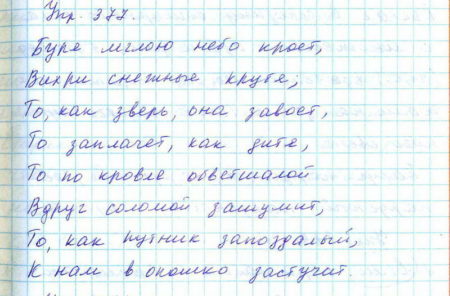 Упр. 377.
Буря мглою небо кроет,
Вихри снежные крутя;
То, как зверь, она завоет,
То заплачет, как дитя,
То по кровле обветшалой
Вдруг соломой зашумит,
То, как путник запоздалый,
К нам в окошко застучит.